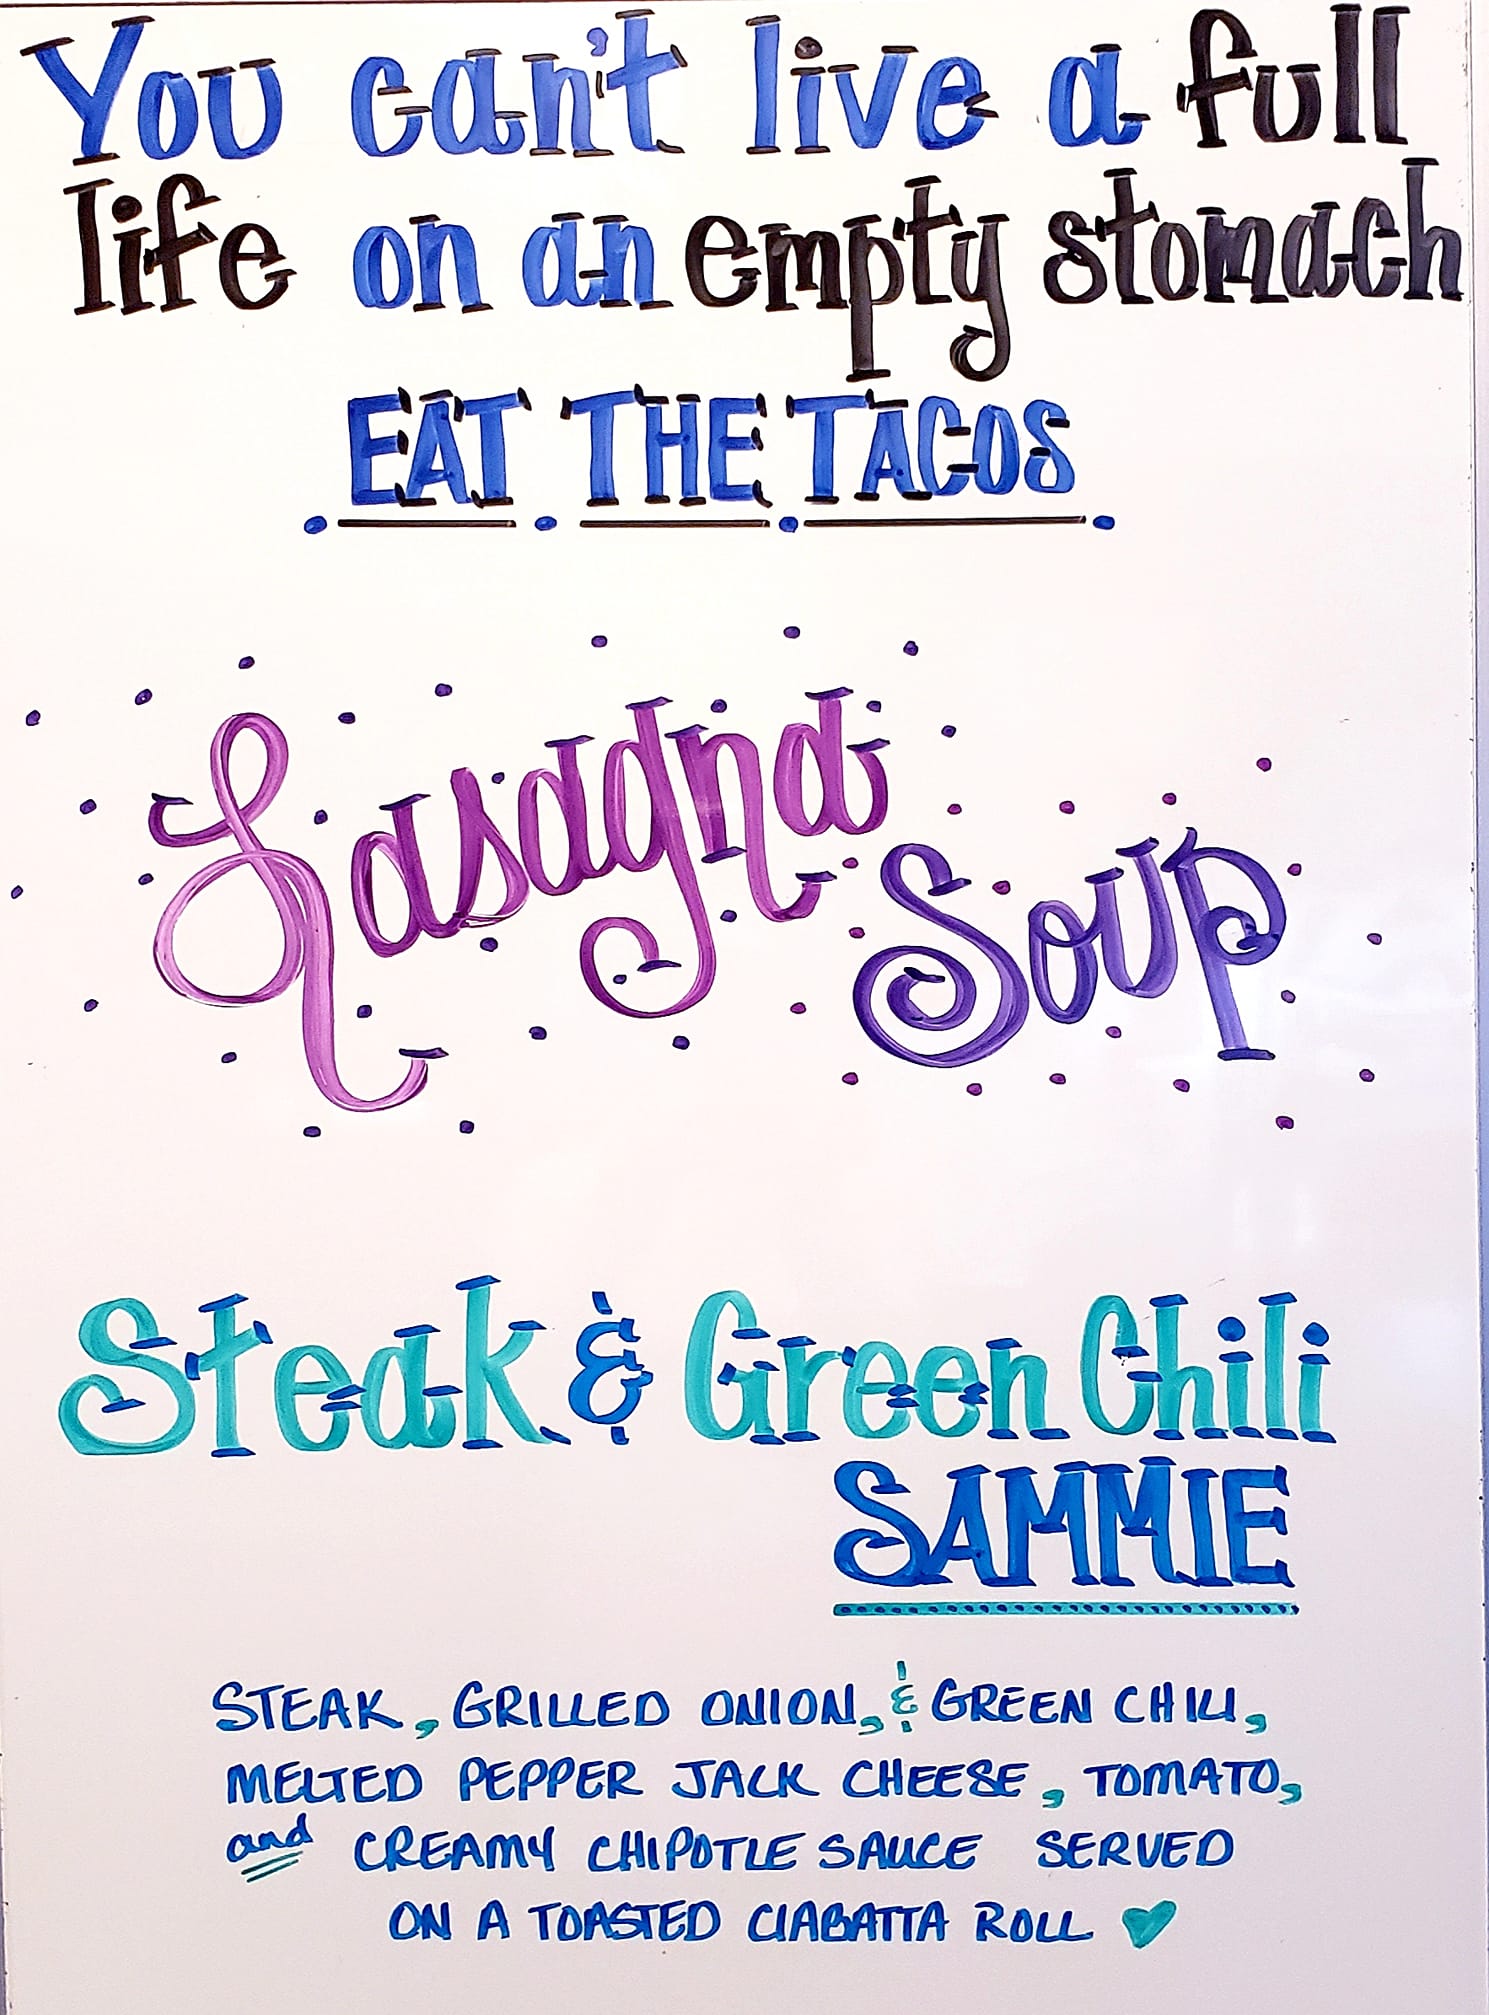 You can't live a full
life on an empty stomach
EAT THE TACOS
Lasagna
Soup
Steak & Green Chili
SAMMIE
STEAK, GRILLED ONION, & GREEN CHILI,
MELTED PEPPER JACK CHEESE, TOMATO,
and CREAMY CHIPOTLE SAUCE SERVED
ON A TOASTED CIABATTA ROLL ♥